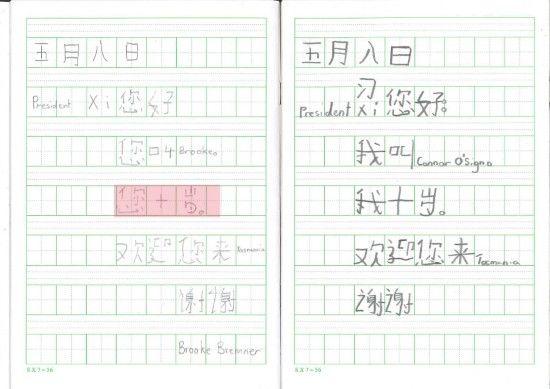 五月八日
President Xi 您好
您叫 Brooke。
您十岁。
欢迎您来 Tasmania
谢谢
Brooke Bremner
五月八日
习
President Xi 您好。
我叫 Connor
我十岁。
欢迎您来 Tasmania
谢谢